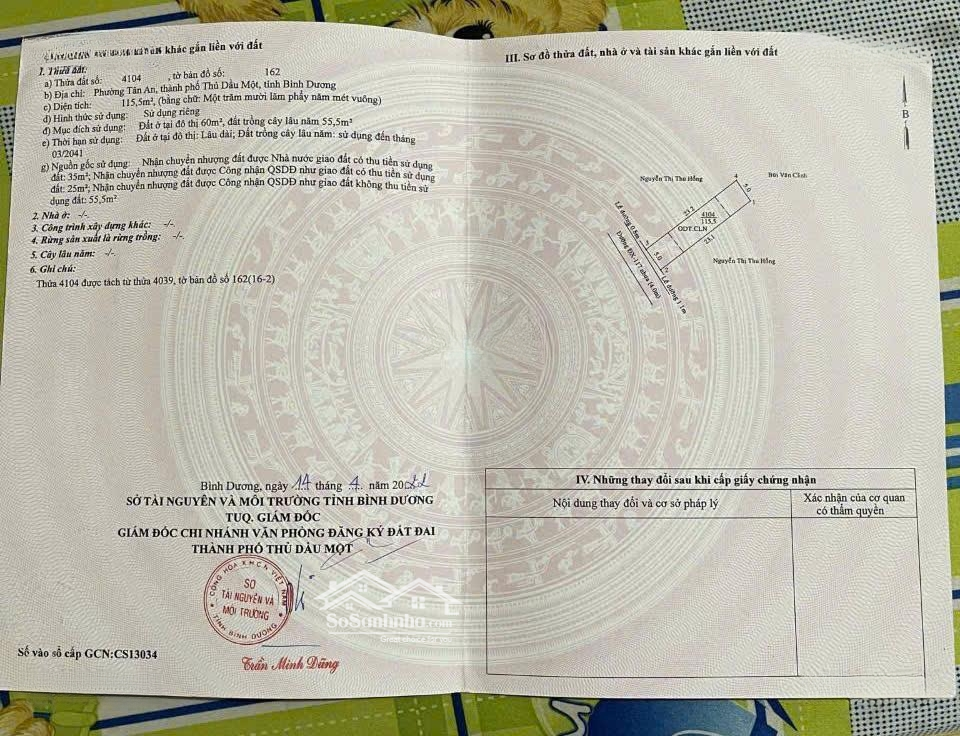 khác gắn liền với đất
1. Thửa đất:
a) Thửa đất số: 4104 , tờ bản đồ số: 162
b) Địa chỉ: Phường Tân An, thành phố Thủ Dầu Một, tỉnh Bình Dương
c) Diện tích: 115,5m², (bằng chữ: Một trăm mười lăm phẩy năm mét vuông)
d) Hình thức sử dụng: Sử dụng riêng
đ) Mục đích sử dụng: Đất ở tại đô thị 60m², đất trồng cây lâu năm 55,5m²
e) Thời hạn sử dụng: Đất ở tại đô thị: Lâu dài; Đất trồng cây lâu năm: sử dụng đến tháng
03/2041
g) Nguồn gốc sử dụng: Nhận chuyển nhượng đất được Nhà nước giao đất có thu tiền sử dụng
đất: 35m²; Nhận chuyển nhượng đất được Công nhận QSDĐ như giao đất có thu tiền sử dụng
đất: 25m²; Nhận chuyển nhượng đất được Công nhận QSDĐ như giao đất không thu tiền sử
dụng đất: 55,5m²
2. Nhà ở: -/-
3. Công trình xây dựng khác: -/-
4. Rừng sản xuất là rừng trồng: -/-
5. Cây lâu năm: -/-
6. Ghi chú:
Thửa 4104 được tách từ thửa 4039, tờ bản đồ số 162(16-2)
Bình Dương, ngày 14 tháng 4 năm 2022
SỞ TÀI NGUYÊN VÀ MÔI TRƯỜNG TỈNH BÌNH DƯƠNG
TUQ. GIÁM ĐỐC
GIÁM ĐỐC CHI NHÁNH VĂN PHÒNG ĐĂNG KÝ ĐẤT ĐAI
THÀNH PHỐ THỦ DẦU MỘT
CỘNG HÒA X.H.C.N VIỆT NAM
SỞ
TÀI NGUYÊN VÀ
MÔI TRƯỜNG
TỈNH BÌNH DƯƠNG
SoSanhnha.com
Trần Minh Dũng
Số vào sổ cấp GCN:CS13034
III. Sơ đồ thửa đất, nhà ở và tài sản khác gắn liền với đất
B
Nguyễn Thị Thu Hồng
Bùi Văn Cảnh
4
5.0
1
23,2
4104
115,5
ODT.CLN
23,1
3
5.0
2
Lề đường 0.8m
Đường ĐX-117 nhựa (4.0m)
Lề đường 1.1m
Nguyễn Thị Thu Hồng
IV. Những thay đổi sau khi cấp giấy chứng nhận
Nội dung thay đổi và cơ sở pháp lý
Xác nhận của cơ quan
có thẩm quyền